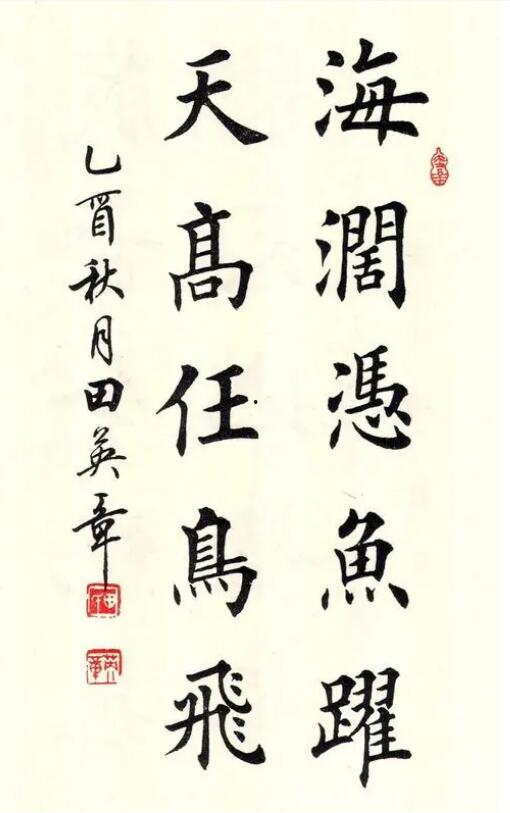 海濶憑魚躍
天高任鳥飛
乙酉秋月田英章
田
英章